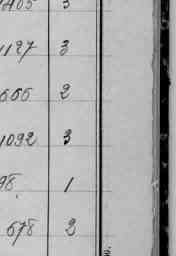 1405 3
1127 3
666 2
1092 3
98. 1
678 2